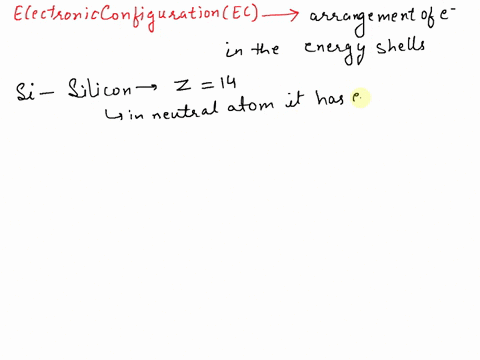 Electronic Configuration (EC) → arrangement of e⁻
in the energy shells
Si – Silicon → Z = 14
↳ in neutral atom it has e